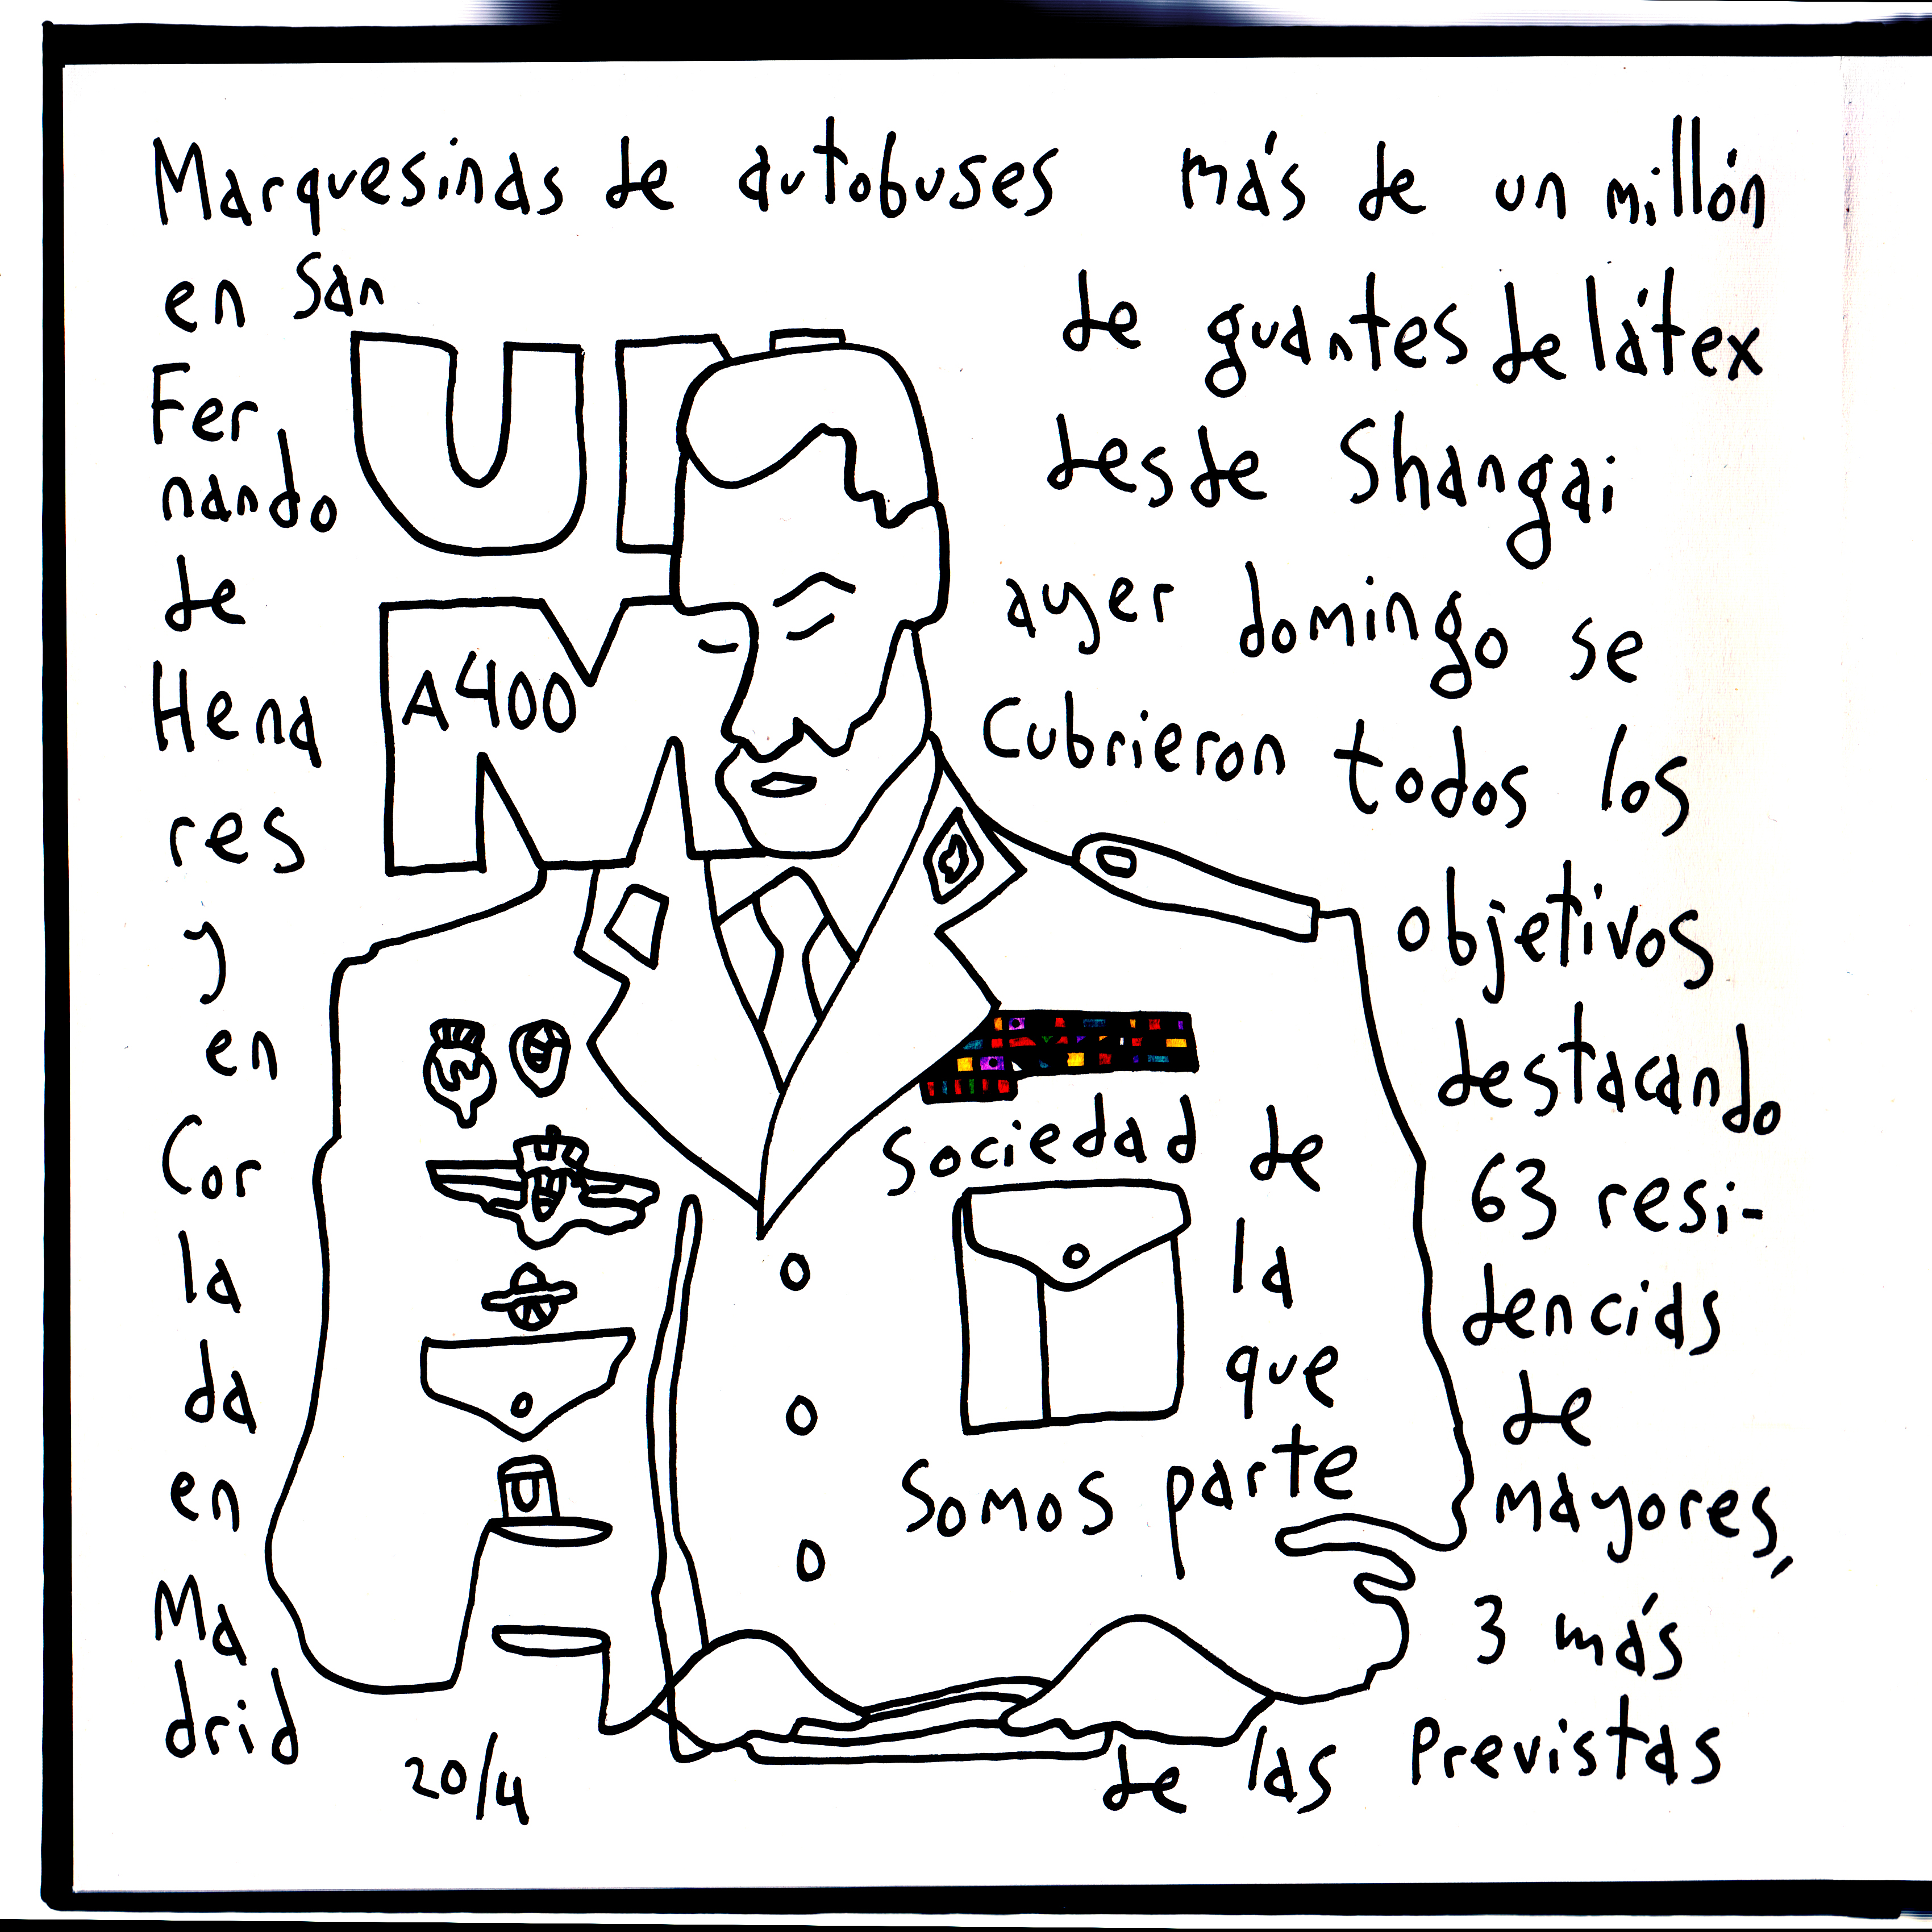 Marquesinas de autobuses
en San
Fer
nando
de
Hena
res
y
en
Cor
la
da
en
Ma
drid
20/4
UN
A400
M
más de un millón
de guantes de látex
desde Shangai
ayer domingo se
cubrieron todos los
objetivos
destacando
63 resi-
dencias
de
mayores,
3 más
de las previstas
Sociedad de
la
que
somos parte